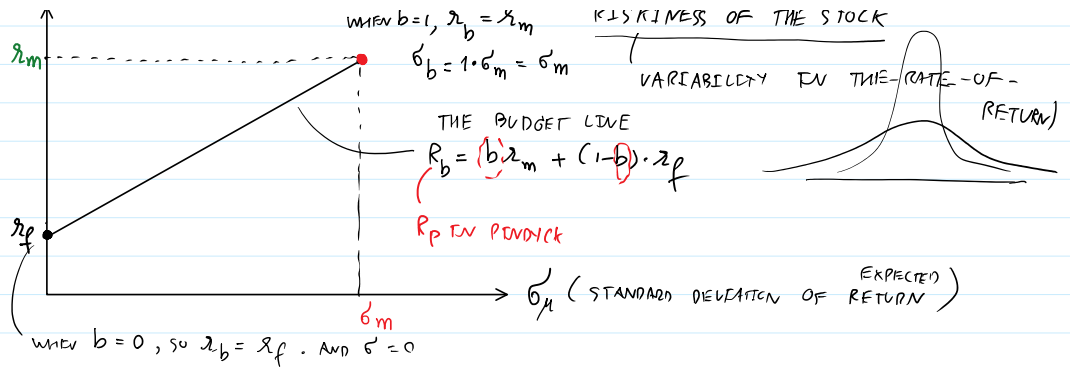 WHEN b=1, r_b = r_m
RISKINESS OF THE STOCK
r_m
σ_b = 1·σ_m = σ_m
VARIABILITY IN THE RATE-OF-
RETURN)
THE BUDGET LINE
R_b = b r_m + (1-b)·r_f
R_p IN PINDYCK
r_f
σ_μ (STANDARD DEVIATION OF EXPECTED RETURN)
σ_m
WHEN b=0, SO r_b = r_f. AND σ=0